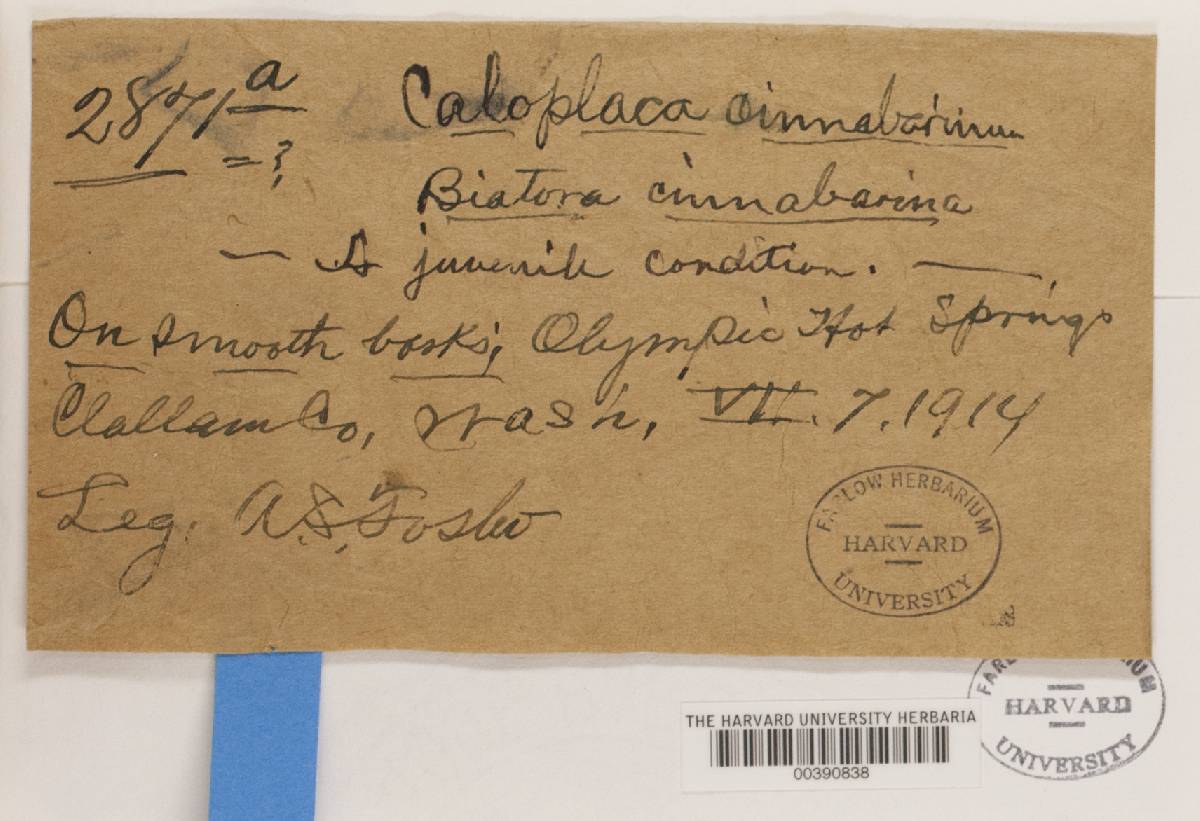 2871 a Caloplaca cinnabarinum
= ?
Biatora cinnabarina
— A juvenile condition. —
On smooth barks, Olympic Hot Springs
Clallam Co, Wash, VII. 7. 1914
Leg. A.S. Foster
FARLOW HERBARIUM
HARVARD
UNIVERSITY
HARVARD
UNIVERSITY
THE HARVARD UNIVERSITY HERBARIA
00390838